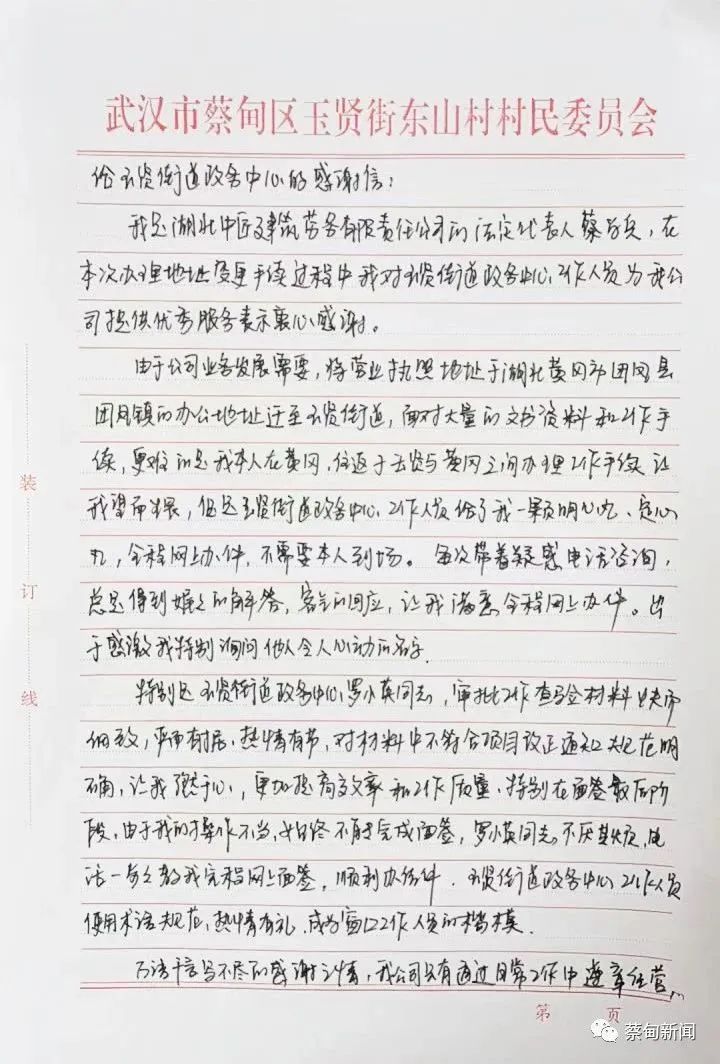 武汉市蔡甸区玉贤街东山村村民委员会
给玉贤街道政务中心的感谢信：
我是湖北中匠建筑劳务有限责任公司的法定代表人蔡兵，在
本次办理地址变更手续过程中我对玉贤街道政务中心工作人员为我公
司提供优秀服务表示衷心感谢。
由于公司业务发展需要，将营业执照地址于湖北黄冈市团风县
团风镇的办公地址迁至玉贤街道，面对大量的文书资料和工作手
续，更难的是我本人在黄冈，往返于玉贤与黄冈之间办理工作手续让
我望而生畏，但是玉贤街道政务中心工作人员给了我一颗明心丸、定心
丸，全程网上办件，不需要本人到场。每次带着疑惑电话咨询，
总是得到娓娓的解答，客气的回应，让我满意全程网上办件。出
于感激我特别询问他人令人心动的名字
特别是玉贤街道政务中心罗小英同志，审批工作查验材料
细致，严而有度、热情有节，对材料中不符合项目改正通知规范明
确，让我强于心，更加提高效率和工作质量，特别在面签最后阶
段，由于我的操作不当，始终不能完成面签，罗小英同志不厌其烦，电
话一步步教我完程网上面签，顺利办结件．玉贤街道政务中心工作人员
使用术语规范，热情有礼，成为窗口工作人员的楷模．
万语千言写不尽的感谢之情，我公司只有通过日常工作中遵章经营，
装
订
线
第 页
蔡甸新闻